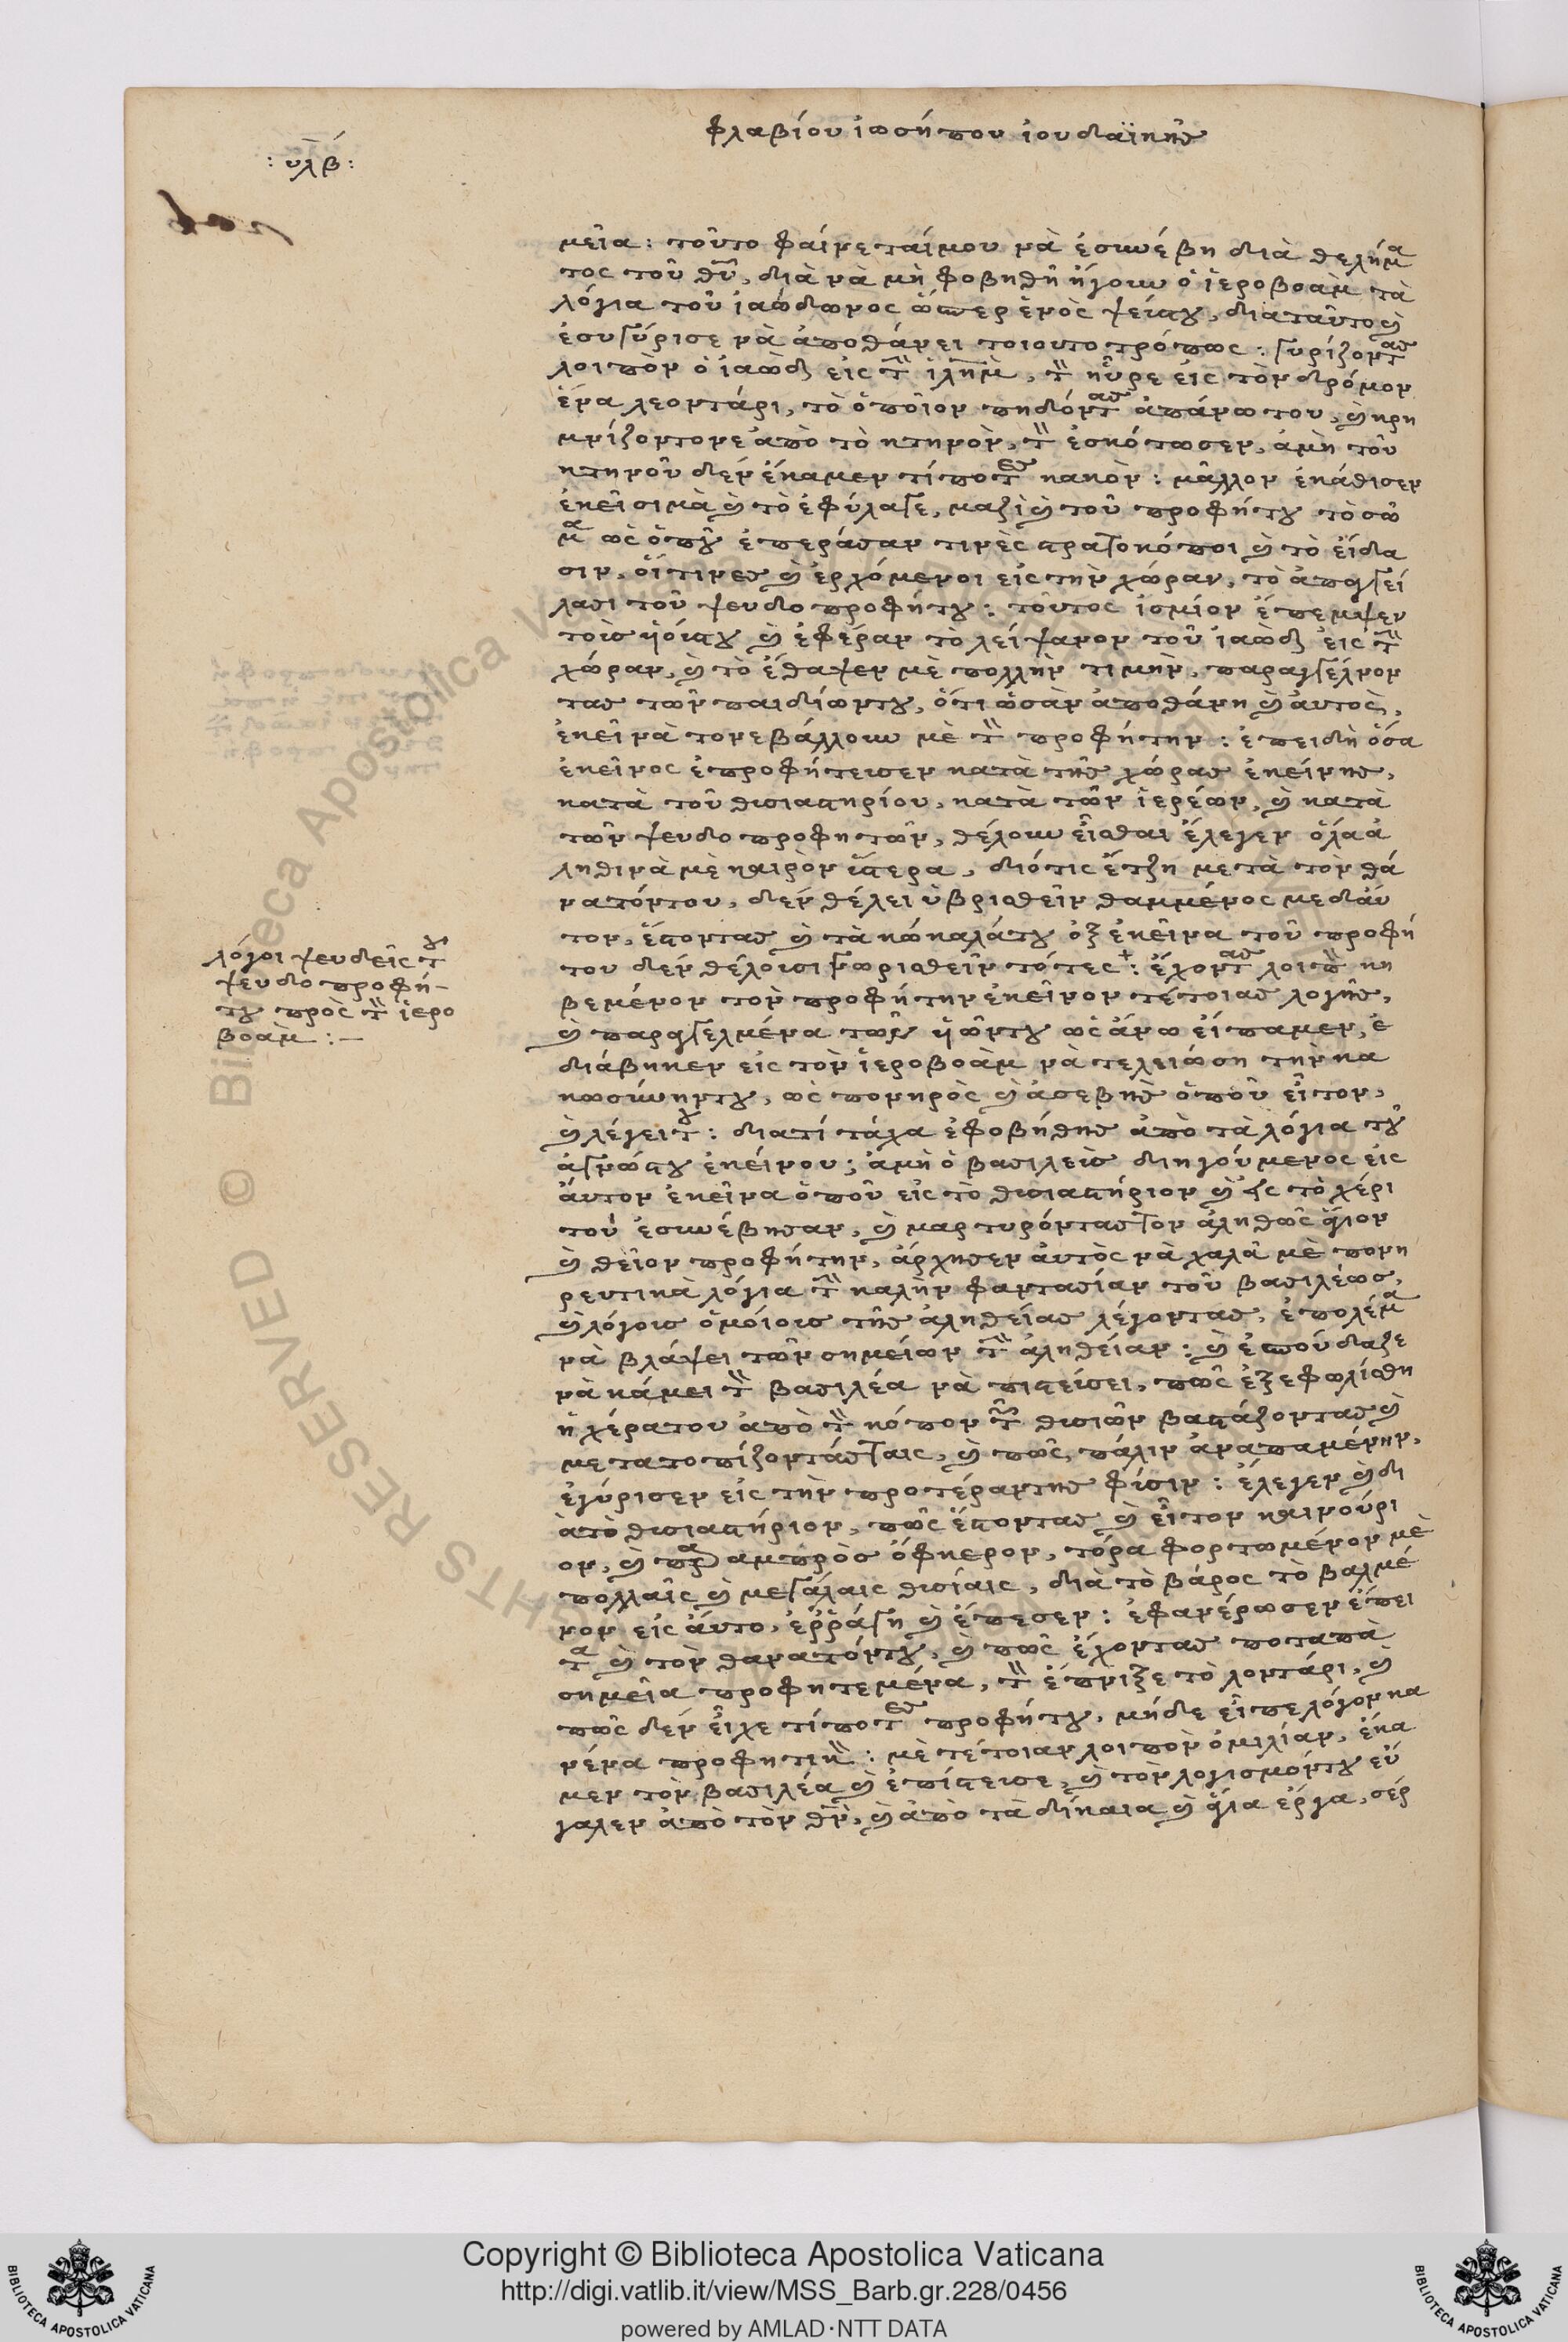 φλαβίου ἰωσήπου ἰουδαϊκῆς
: υλβ :
μεῖα : τοῦτο φαίνεταίμου νὰ ἐσυνέβη διὰ θελήμα
τος τοῦ θῦ, διὰ νὰ μὴ φοβηθῆ ἤγουν ὁ ἱεροβοὰμ τὰ
λόγια τοῦ ἰαώδωνος ὥσπερ ἑνὸς ψεύστου, διαταῦτο καὶ
ἐσυγύρισε νὰ ἀποθάνει τοιουτοτρόπως : γυρίζοντας
λοιπὸν ὁ ἰαὼδ εἰς τὴν ἰλημ, τὸν ηὗρε εἰς τὸν δρόμον
ἕνα λεοντάρι, τὸ ὁποῖον πηδόντας ἀπάνω του, καὶ κρη
μνίζοντονε ἀπὸ τὸ κτηνὸν, τὸν ἐσκότωσεν, ἀμὴ τοῦ
κτηνοῦ δὲν ἔκαμεν τίποτες κακὸν : μᾶλλον ἐκάθισεν
ἐκεῖ σιμὰ καὶ τὸ ἐφύλαγε, μαζὶ καὶ τοῦ προφήτου τὸ σῶ
μα ὡς ὁποῦ ἐπεράσαν τινὲς στρατοκόποι καὶ τὸ εἴδα
σιν, οἵτινες καὶ ἐρχόμενοι εἰς τὴν χώραν, τὸ ἀπαγγεί
λασι τοῦ ψευδοπροφήτου : τοῦτος ἰσμίον ἔπεμψεν
τοὺς ὑούςτου καὶ ἐφέραν τὸ λείψανον τοῦ ἰαὼδ εἰς τὴν
χώραν, καὶ τὸ ἔθαψεν μὲ πολλὴν τιμὴν, παραγγέλνον
τας τῶν παιδίωντου, ὅτι ὡσὰν ἀποθάνη καὶ αὐτὸς,
ἐκεῖ νὰ τονεβάλλουν μὲ τὸν προφήτην : ἐπειδὴ ὅσα
ἐκεῖνος ἐπροφήτευσεν κατὰ τῆς χώρας ἐκείνης,
κατὰ τοῦ θυσιαστηρίου, κατὰ τῶν ἱερέων, καὶ κατὰ
τῶν ψευδοπροφητῶν, θέλουν εἶσθαι ἔλεγεν ὅλα ἀ
ληθινὰ μὲ καιρὸν ὕστερα, διότις ἔτζη μετὰ τὸν θά
νατόντου, δὲν θέλει ὑβρισθεῖν θαμμένος μεδαύ
τον, ἔστοντας καὶ τὰ κώκαλάτου ὀξ ἐκεῖνα τοῦ προφή
του δὲν θέλουσι γνωρισθεῖν τότες : ἔχοντας λοιπὸν κη
βεμένον τὸν προφήτην ἐκεῖνον τέτοιας λογῆς,
καὶ παραγγελμένα τῶν ὑῶντου ὡς ἄνω εἴπαμεν, ἐ
διάβηκεν εἰς τὸν ἱεροβοὰμ νὰ τελειώση τὴν κα
κωσύνητου, ὡς πονηρὸς καὶ ἀσεβὴς ὁποῦ εἶτον,
καὶ λέγειτου : διατί τάχα ἐφοβήθης ἀπὸ τὰ λόγια τοῦ
ἀγνώστου ἐκείνου ; ἀμὴ ὁ βασιλεὺς διηγούμενος εἰς
αὐτον ἐκεῖνα ὁποῦ εἰς τὸ θυσιαστήριον καὶ εἰς τὸ χέρι
τοῦ ἐσυνέβησαν, καὶ μαρτυρόντας τον ἀληθῶς ἅγιον
καὶ θεῖον προφήτην, ἄρχησεν αὐτὸς νὰ χαλᾶ μὲ πονη
ρευτικὰ λόγια τὴν καλὴν φαντασίαν τοῦ βασιλέως,
καὶ λόγους ὁμοίους τῆς ἀληθείας λέγοντας, ἐπολέμα
νὰ βλάψει τῶν σημείων τὴν ἀλήθειαν : καὶ ἐσπούδαζε
νὰ κάμει τὸν βασιλέα νὰ πιστεύσει, πῶς ἐξεφωλίσθη
ἡ χέρατου ἀπὸ τὸν κόπον τῶν θυσιῶν βαστάζοντας καὶ
μετατοπίζοντάς ταις, καὶ πῶς πάλιν ἀναπαμένην,
ἐγύρισεν εἰς τὴν προτέραντης φύσιν : ἔλεγεν καὶ δι
ὰ τὸ θυσιαστήριον, πῶς ἔστοντας καὶ εἶτον καινούρι
ον, καὶ παραμπρὸς ὄφκερον, τόρα φορτωμένον μὲ
πολλαῖς καὶ μεγάλαις θυσίαις, διὰ τὸ βάρος τὸ βαλμέ
νον εἰς αὐτο, ἐρράγη καὶ ἔπεσεν : ἐφανέρωσεν ἔπει
τα καὶ τὸν θανατόντου, καὶ πῶς ἔχοντας ποταπὰ
σημεῖα προφητεμένα, τὸν ἔπνιξε τὸ λοντάρι, καὶ
πῶς δὲν εἶχε τίποτες προφήτου, μήδε εἶπε λόγον κα
νένα προφητικὸν : μὲ τέτοιαν λοιπὸν ὁμιλίαν, ἔκα
μεν τὸν βασιλέα καὶ ἐπίστευσε, καὶ τὸν λογισμόντου εὔ
γαλεν ἀπὸ τὸν θν, καὶ ἀπὸ τὰ δίκαια καὶ ἅγια ἔργα, σέρ
λόγοι ψευδεῖς τοῦ
ψευδοπροφή-
του πρὸς τὸν ἱερο
βοάμ : —
Copyright © Biblioteca Apostolica Vaticana
http://digi.vatlib.it/view/MSS_Barb.gr.228/0456
powered by AMLAD·NTT DATA